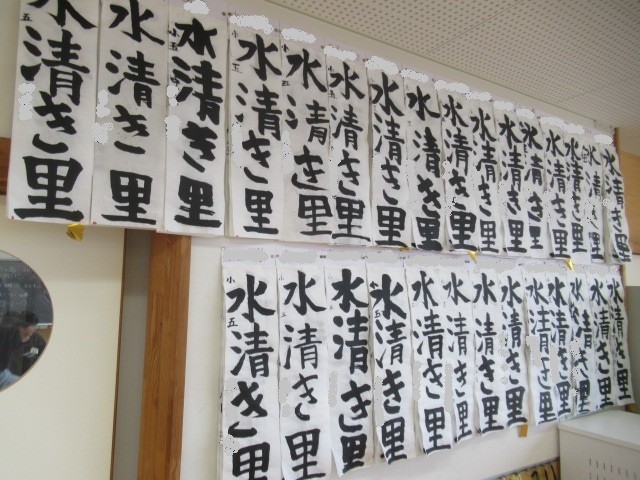 水清き里 五
水清き里
水清き里 小五
水清き里 小五
水清き里 小五
水清き里
水清き里
水清き里
水清き里
水清き里
水清き里
水清き里
水清き里
水清き里
水清き里
水清き里
水清き里 小五
水清き里
水清き里
水清き里 小五
水清き里
水清き里
水清き里
水清き里
水清き里
水清き里
水清き里
水清き里
水清き里